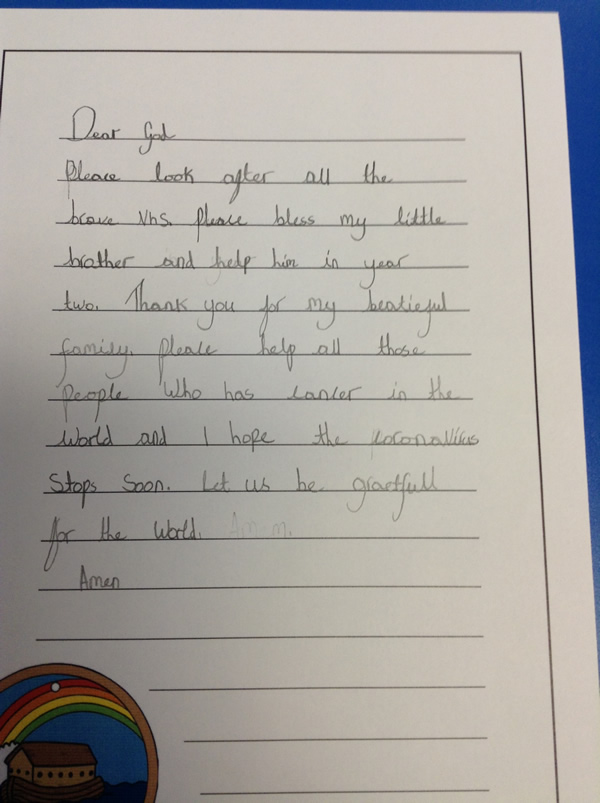 Dear God
Please look after all the
brave Nhs. please bless my little
brother and help him in year
two. Thank you for my beatieful
family. please help all those
people Who has cancer in the
World and I hope the coronaVirus
Stops Soon. Let us be graetfull
for the World. Amem.
Amen